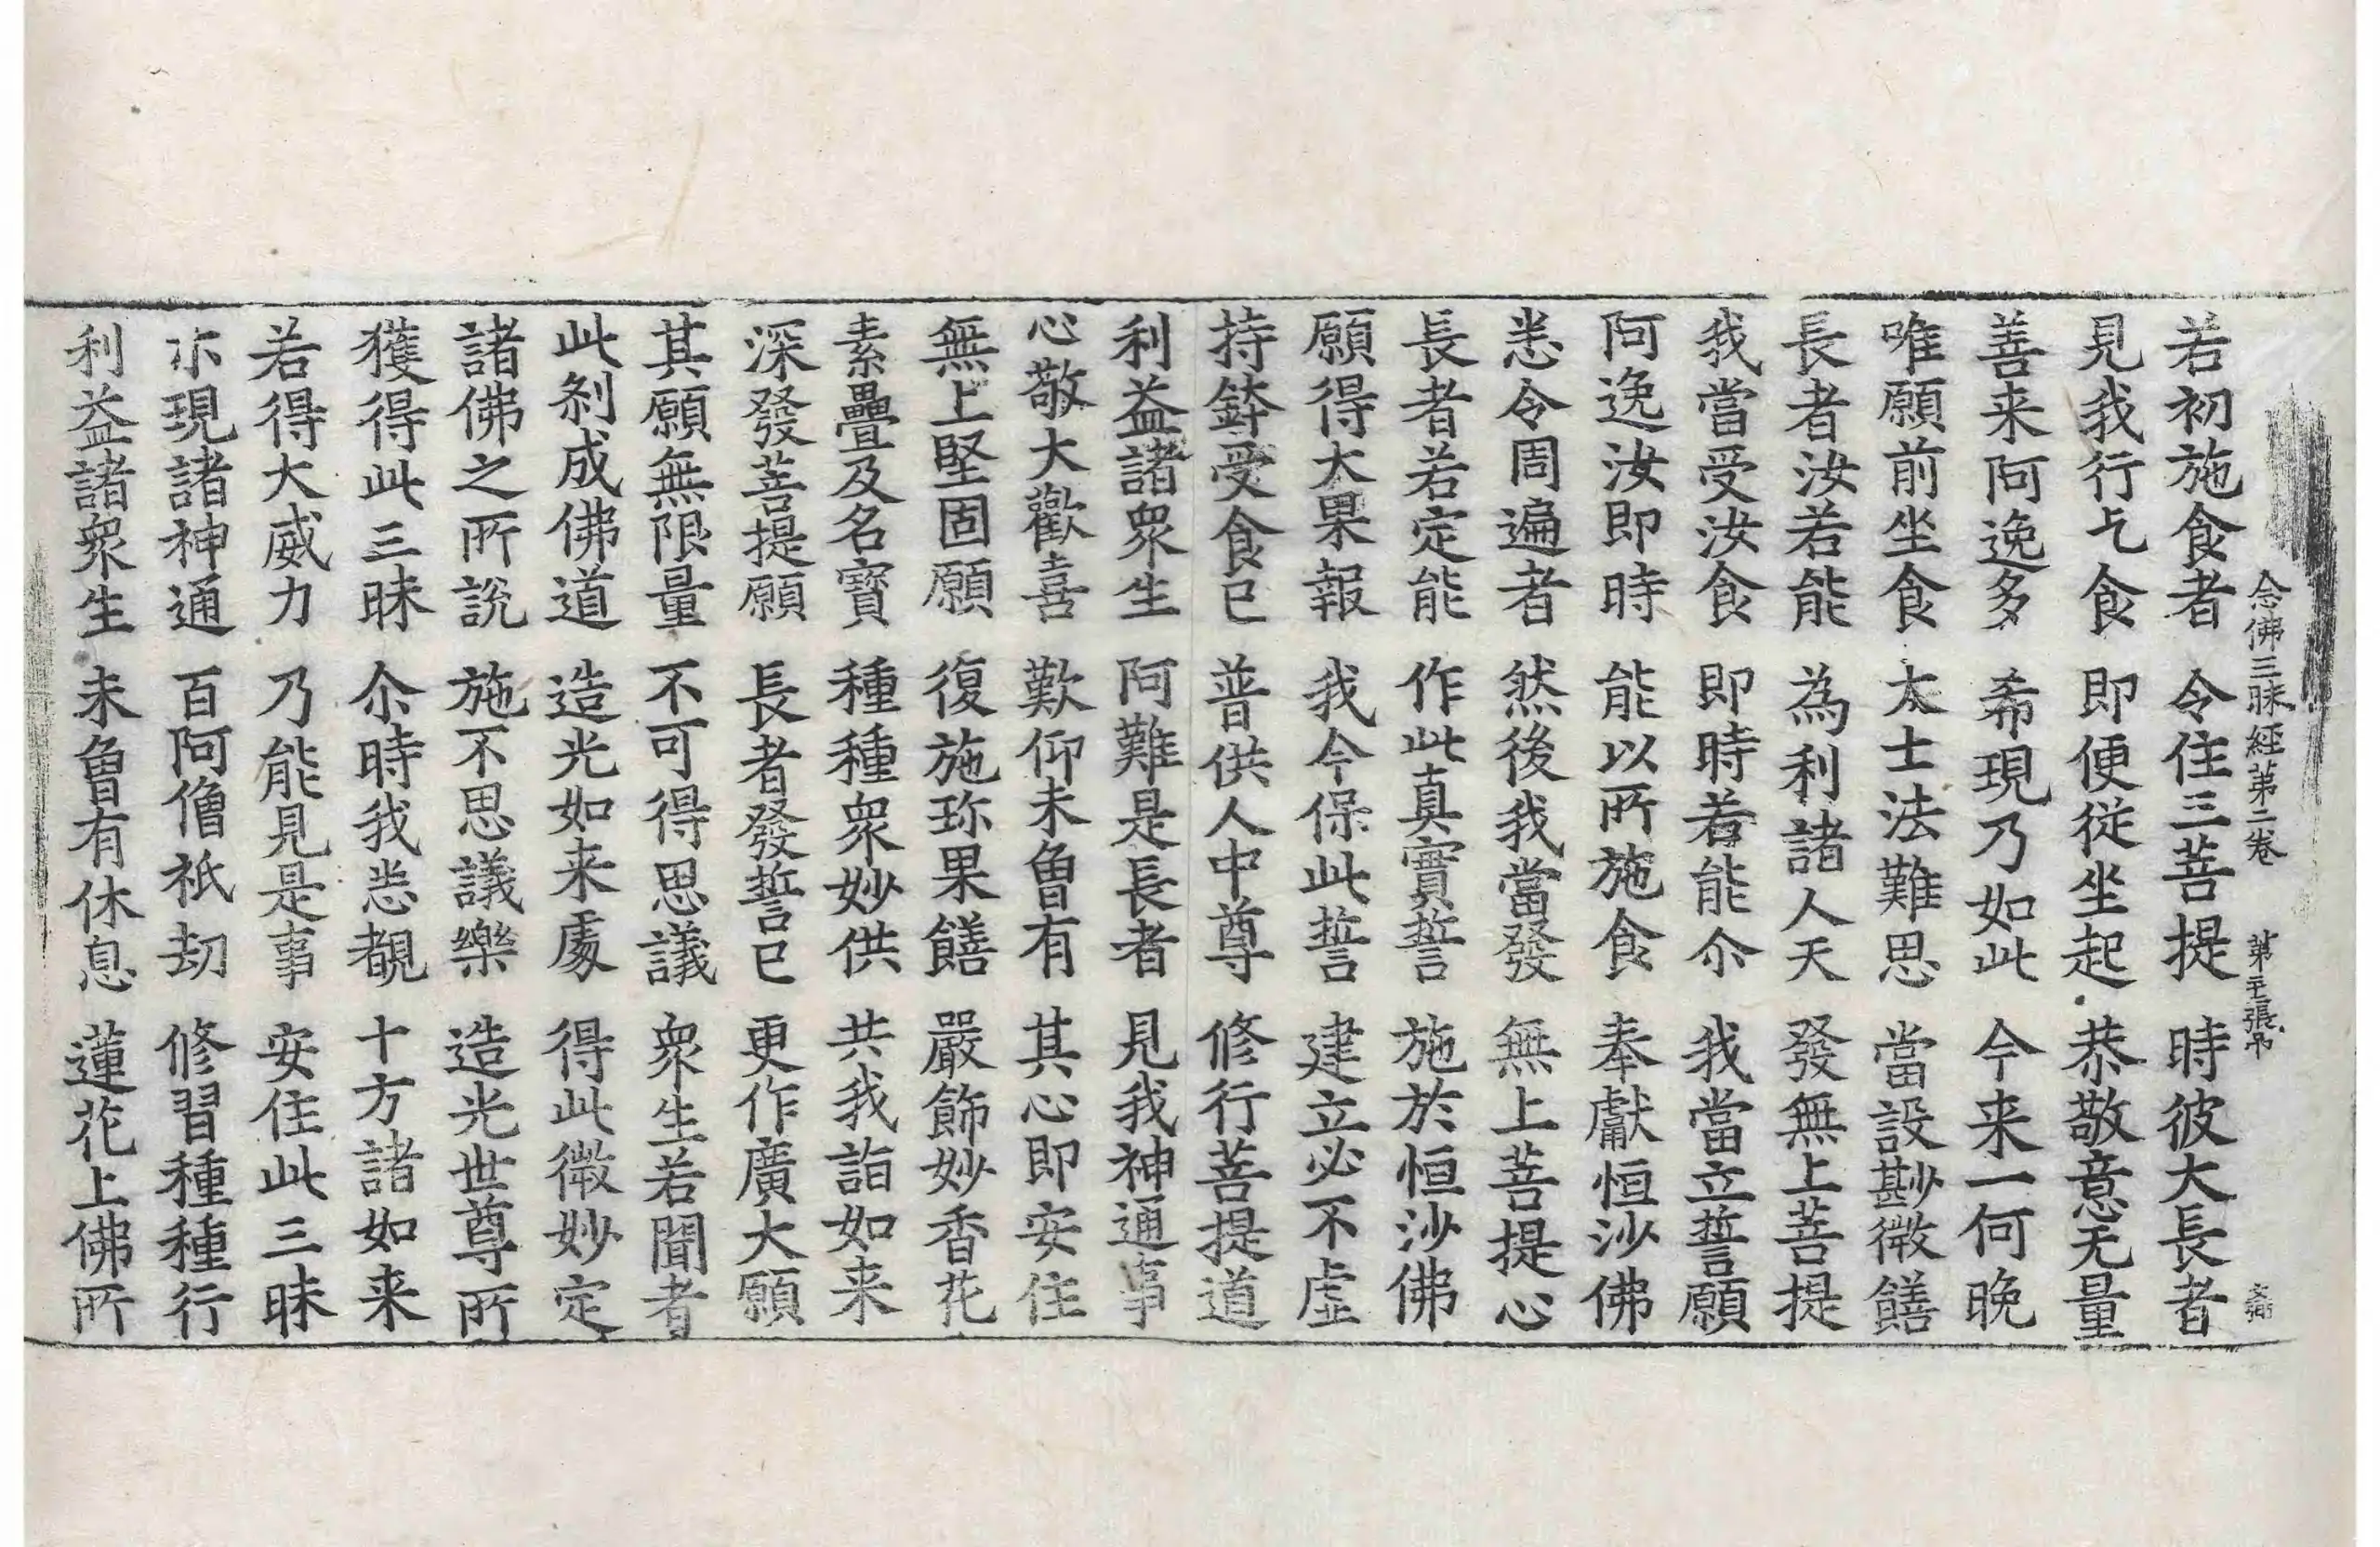 念佛三昧經第二卷　第三張 帝
若初施食者　令住三菩提　時彼大長者
見我行乞食　即便從坐起　恭敬意无量
善来阿逸多　希現乃如此　今来一何晚
唯願前坐食　大士法難思　當設尠微饍
長者汝若能　為利諸人天　發無上菩提
我當受汝食　即時若能尒　我當立誓願
阿逸汝即時　能以所施食　奉獻恒沙佛
悉令周遍者　然後我當發　無上菩提心
長者若定能　作此真實誓　施於恒沙佛
願得大果報　我今保此誓　建立必不虛
持鉢受食已　普供人中尊　修行菩提道
利益諸衆生　阿難是長者　見我神通事
心敬大歡喜　歎仰未曾有　其心即安住
無上堅固願　復施珎果饍　嚴飾妙香花
素疊及名寶　種種衆妙供　共我詣如来
深發菩提願　長者發誓已　更作廣大願
其願無限量　不可得思議　衆生若聞者
此刹成佛道　造光如来處　得此微妙定
諸佛之所說　施不思議樂　造光世尊所
獲得此三昧　尒時我悉覩　十方諸如来
若得大威力　乃能見是事　安住此三昧
尒現諸神通　百阿僧祇劫　修習種種行
利益諸衆生　未曾有休息　蓮花上佛所